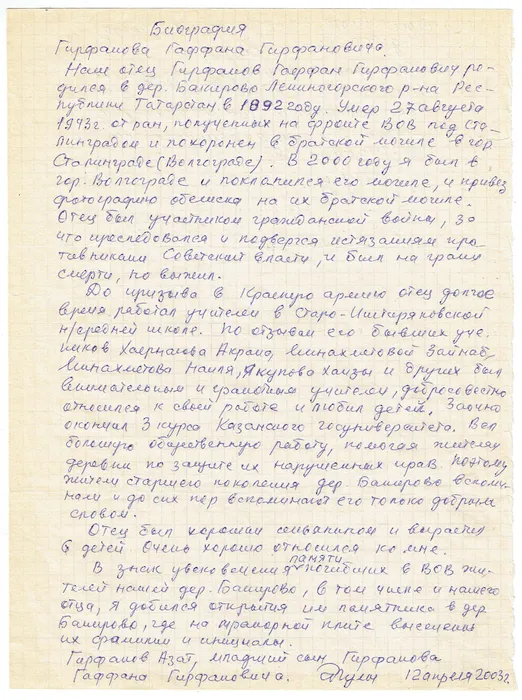 Биография
Гирфанова Гаффана Гирфановича.
Наш отец Гирфанов Гаффан Гирфанович ро-
дился в дер. Бакирово Лениногорского р-на Рес-
публики Татарстан в 1892 году. Умер 27 августа
1943г. от ран, полученных на фронте ВОВ под Ста-
линградом и похоронен в братской могиле в гор.
Сталинграде (Волгограде). В 2000 году я был в
гор. Волгограде и поклонился его могиле, и привез
фотографию обелиска на их братской могиле.
Отец был участником гражданской войны, за
что преследовался и подвергся истязаниям про-
тивниками Советской власти, и был на грани
смерти, но выжил.
До призыва в Красную армию отец долгое
время работал учителем в Старо-Иштеряковской
н/средней школе. По отзывам его бывших уче-
ников Акрама, Минахметовой Зайнаб,
Минахметова Наиля, Якупова и других был
внимательным и грамотным учителем, добросовестно
относился к своей работе и любил детей. Заочно
окончил 3 курса Казанского госуниверситета. Вел
большую общественную работу, помогая жителям
деревни по защите их нарушенных прав. Поэтому
жители старшего поколения дер. Бакирово вспоми-
нали и до сих пор вспоминают его только добрым
словом.
Отец был хорошим семьянином и вырастил
6 детей. Очень хорошо относился ко мне.
В знак увековечения памяти погибших в ВОВ жи-
телей нашей дер. Бакирово, в том числе и нашего
отца, я добился открытия им памятника в дер.
Бакирово, где на мраморной плите высечены
их фамилии и инициалы.
Гирфанов Азат, младший сын Гирфанова
Гаффана Гирфановича. 12 апреля 2003г.